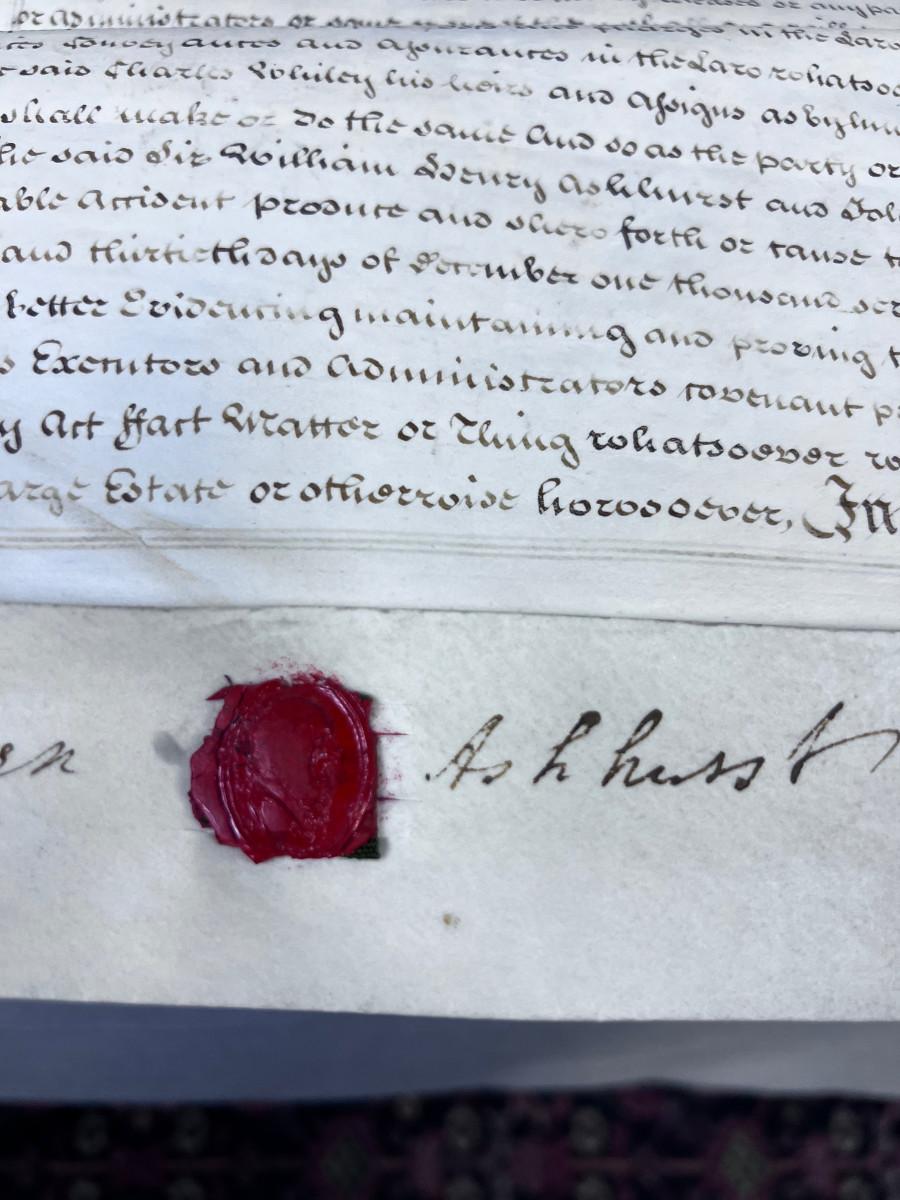 or administrators or some
Conveyances and Assurances in the Law whatsoe
said Charles Whiley his heirs and Assigns as by
shall make or Do the same And so as the party or
he said Sir William Henry Ashhurst and
able Accident produce and shew forth or cause t
and thirtieth days of December one thousand sev
better Evidencing maintaining and proving t
s Executors and Administrators covenant p
y Act ffact Matter or Thing whatsoever w
arge Estate or otherwise howsoever, In
en Ashhurst